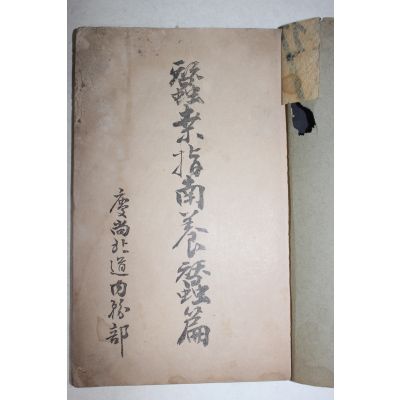 蠶業指南養蠶篇
慶尙北道內務部